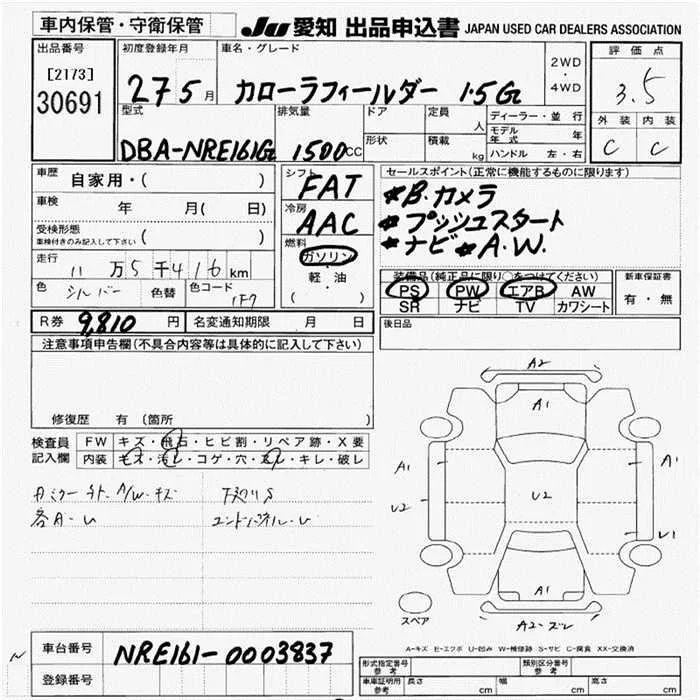 車内保管・守衛保管
JU 愛知 出品申込書 JAPAN USED CAR DEALERS ASSOCIATION
出品番号
[2173]
30691
初度登録年月
27 5 月
車名・グレード
カローラフィールダー 1.5G
2WD
・
4WD
評価点
3.5
外装 内装
C C
型式
DBA-NRE161G
排気量
1500 CC
ドア
形状
定員
人
積載
kg
ディーラー・並行
モデル年式 年
ハンドル 左・右
車歴
自家用・( )
車検
年 月( 日)
受検形態
車検付きのみ記入して下さい ( )
走行
11 万 5 千 416 km
色
シルバー
色替
色コード
1F7
シフト
FAT
冷房
AAC
燃料
ガソリン
・
軽・油
( )
セールスポイント(正常に機能するものに限ります)
*B.カメラ
*プッシュスタート
*ナビ *A.W.
装備品(純正品に限り○をつけてください)
PS PW エアB AW
SR ナビ TV カワシート
新車保証書
有・無
R券 9,810 円
名変通知期限 月 日
後日品
注意事項申告欄(不具合内容等は具体的に記入して下さい)
修復歴 有 (箇所 )
検査員
記入欄
FW キズ・飛石・ヒビ割・リペア跡・X要
内装 キズ・汚レ・コゲ・穴・スレ・キレ・破レ
A/W・キズ
下廻りS
各A・U
エンドパネル・U
A2
A1
A1
A1
U2
U2
U1
A1
A2・ズレ
スペア
A-キズ E-エクボ U-凹み W-補修跡 S-サビ C-腐食 XX-交換済
車台番号
NRE161-0003837
登録番号
形式指定番号
参考
類別区分番号
参考
車庫証明用
参考
長さ cm
幅 cm
高さ cm